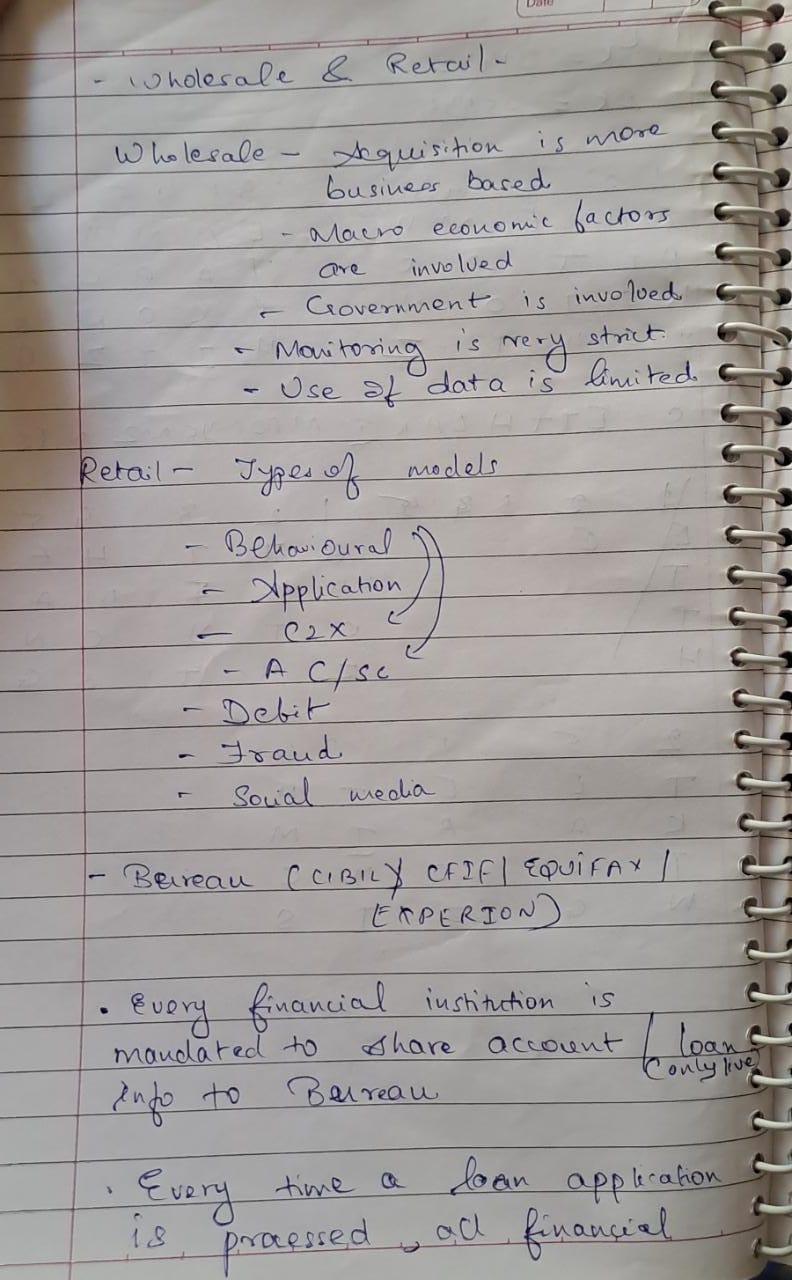 Date
- Wholesale & Retail -
Wholesale - Acquisition is more
business based
- Macro economic factors
are involved
- Government is involved
- Monitoring is very strict.
- Use of data is limited
Retail - Types of models
- Behavioural
- Application
- C2X
- A C/SC
- Debit
- Fraud
- Social media
- Beureau (CIBIL/ CFIF/ EQUIFAX/
EXPERION)
• Every financial institution is
mandated to share account / loan
(only live)
info to Beureau
• Every time a loan application
is processed, all financial